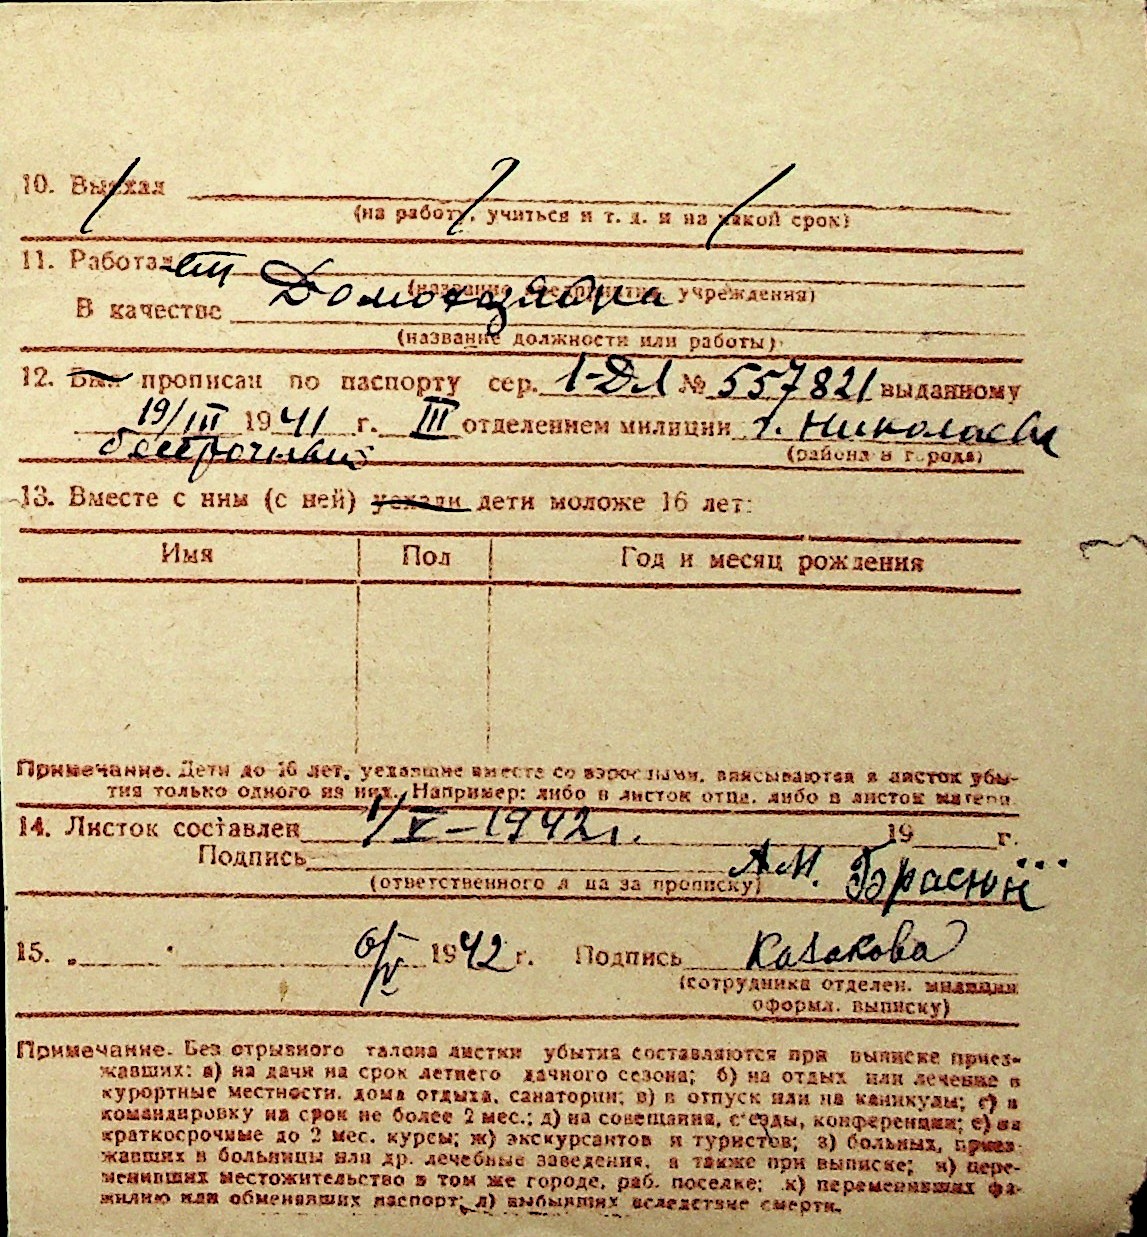 10. Выехал
(на работу, учиться и т. д. и на какой срок)
11. Работает
(название предприятия, учреждения)
Домохозяйка
В качестве
(название должности или работы)
12. Был прописан по паспорту сер. 1-ДЛ № 557821 выданному
19/III 1941 г. III отделением милиции г. Николаева
бессрочный
(района и города)
13. Вместе с ним (с ней) уехали дети моложе 16 лет:
Имя Пол Год и месяц рождения
Примечание. Дети до 16 лет, уехавшие вместе со взрослыми, вписываются в листок убы-
тия только одного из них. Например: либо в листок отца, либо в листок матери.
14. Листок составлен 1/V-1942 г. 19 г.
Подпись А.М.
(ответственного л ца за прописку)
15. 6/V 1942 г. Подпись Казакова
(сотрудника отделен. милиции
оформл. выписку)
Примечание. Без отрывного талона листки убытия составляются при выписке приез-
жавших: а) на дачи на срок летнего дачного сезона; б) на отдых или лечение в
курортные местности, дома отдыха, санатории; в) в отпуск или на каникулы; г) в
командировку на срок не более 2 мес.; д) на совещания, с'езды, конференции; е) на
краткосрочные до 2 мес. курсы; ж) экскурсантов и туристов; з) больных, приез-
жавших в больницы или др. лечебные заведения, а также при выписке; и) пере-
менивших местожительство в том же городе, раб. поселке; к) переменивших фа-
милию или обменявших паспорт; л) выбывших вследствие смерти.